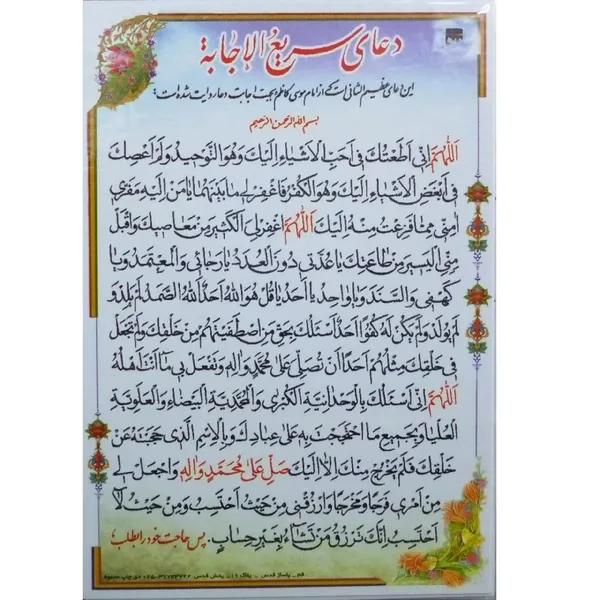 دعای سریع الإجابة
این دعای عظیم الشانی است که از امام موسی کاظم بجهت اجابت دعا روایت شده است:
بسم الله الرحمن الرحیم
اَللّٰهُمَّ اِنّی اَطَعْتُكَ فی اَحَبِّ الْاَشْیاءِ اِلَیْكَ وَهُوَ التَّوْحیدُ وَلَمْ اَعْصِكَ
فی اَبْغَضِ الْاَشْیاءِ اِلَیْكَ وَهُوَ الْكُفْرُ فَاغْفِرْ لی ما بَیْنَهُما یا مَنْ اِلَیْهِ مَفَرّی
امِنّی مِمّا فَزِعْتُ مِنْهُ اِلَیْكَ اَللّٰهُمَّ اغْفِرْ لِیَ الْكَثیرَ مِنْ مَعاصیكَ وَاقْبَلْ
مِنِّی الْیَسیرَ مِنْ طاعَتِكَ یا عُدَّتی دُونَ الْعُدَدِ یا رَجائی وَالْمُعْتَمَدَ وَیا
كَهْفی وَالسَّنَدَ وَیا واحِدُ یا اَحَدُ یا قُلْ هُوَ اللهُ اَحَدٌ اَللهُ الصَّمَدُ لَمْ یَلِدْ وَ
لَمْ یُولَدْ وَلَمْ یَكُنْ لَهُ كُفُوًا اَحَدٌ اَسْئَلُكَ بِحَقِّ مَنِ اصْطَفَیْتَهُمْ مِنْ خَلْقِكَ وَلَمْ تَجْعَلْ
فی خَلْقِكَ مِثْلَهُمْ اَحَدًا اَنْ تُصَلِّیَ عَلی مُحَمَّدٍ وَالِهِ وَتَفْعَلَ بی ما اَنْتَ اَهْلُهُ
اَللّٰهُمَّ اِنّی اَسْئَلُكَ بِالْوَحْدانِیَّةِ الْكُبْری وَالْمُحَمَّدِیَّةِ الْبَیْضاءِ وَالْعَلَوِیَّةِ
الْعُلْیا وَبِجَمیعِ مَا احْتَجَجْتَ بِهِ عَلی عِبادِكَ وَبِالْاِسْمِ الَّذی حَجَبْتَهُ عَنْ
خَلْقِكَ فَلَمْ یَخْرُجْ مِنْكَ اِلّا اِلَیْكَ صَلِّ عَلی مُحَمَّدٍ وَالِهِ وَاجْعَلْ لی
مِنْ اَمْری فَرَجًا وَمَخْرَجًا وَارْزُقْنی مِنْ حَیْثُ اَحْتَسِبُ وَمِنْ حَیْثُ لا
اَحْتَسِبُ اِنَّكَ تَرْزُقُ مَنْ تَشاءُ بِغَیْرِ حِسابٍ. پس حاجت خود را بطلب؛
قم _ پاساژ قدس _ پلاک ۱۱۱_ پخش قدس